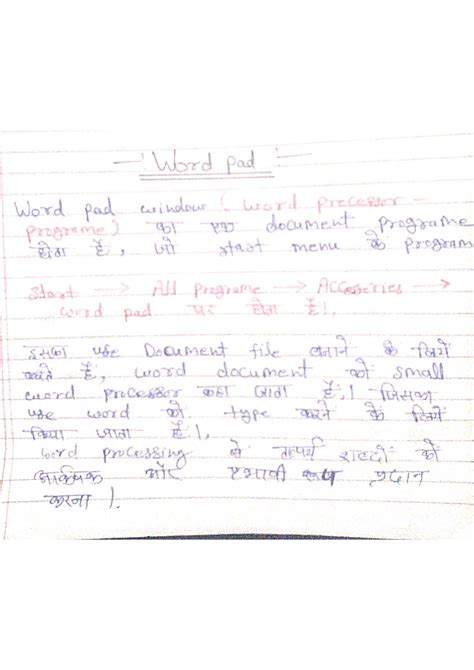 —' Word pad '—
Word pad window (word precesser -
programe) का एक document programe
होता हैं, जो start menu के program
Start → All programe → Accesseries →
word pad पर होता हैं।,
इसका use Document file बनाने के लिये
करते हैं, word document को small
word processor कहा जाता हैं,। जिसका
use word को type करने के लिये
किया जाता हैं।,
word processing से तात्पर्य शब्दों को
आकर्षक और प्रभावी रूप प्रदान
करना।.